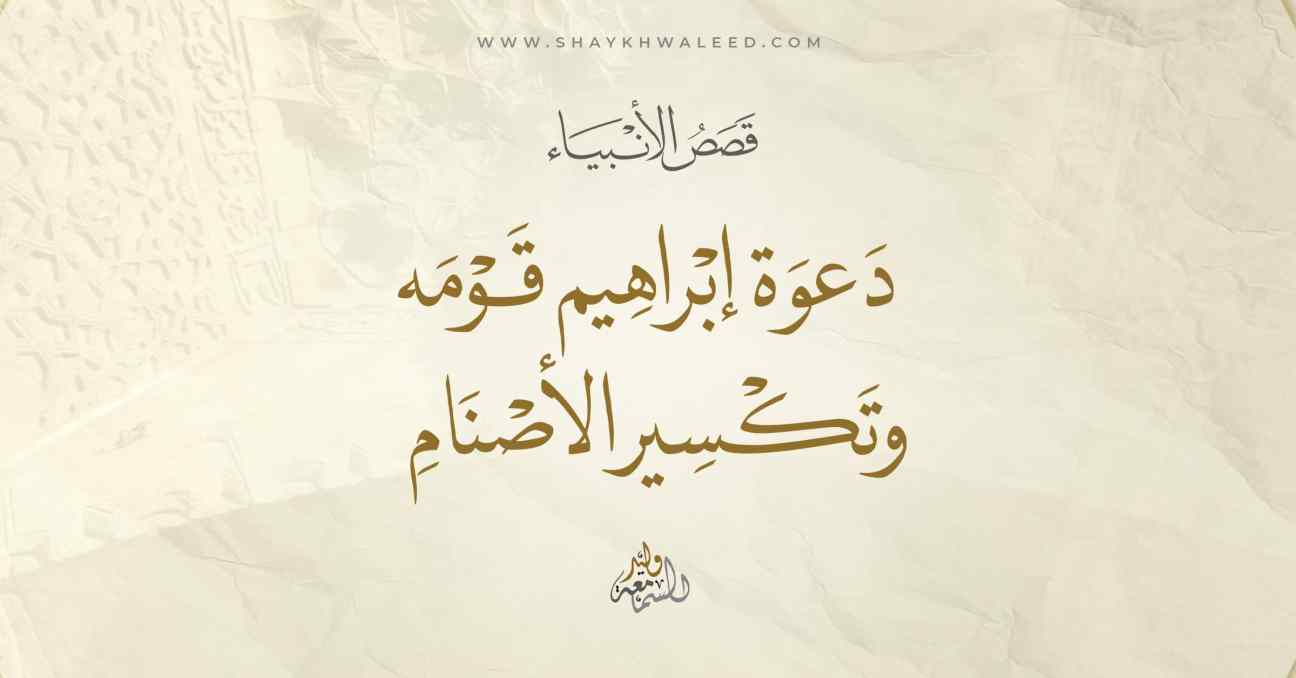 WWW.SHAYKHWALEED.COM
قَصَصُ الأنْبيَاء
دَعوَة إبْراهِيم قَوْمَه
وتَكْسِير الأصْنَامِ
وليد
السمامعة